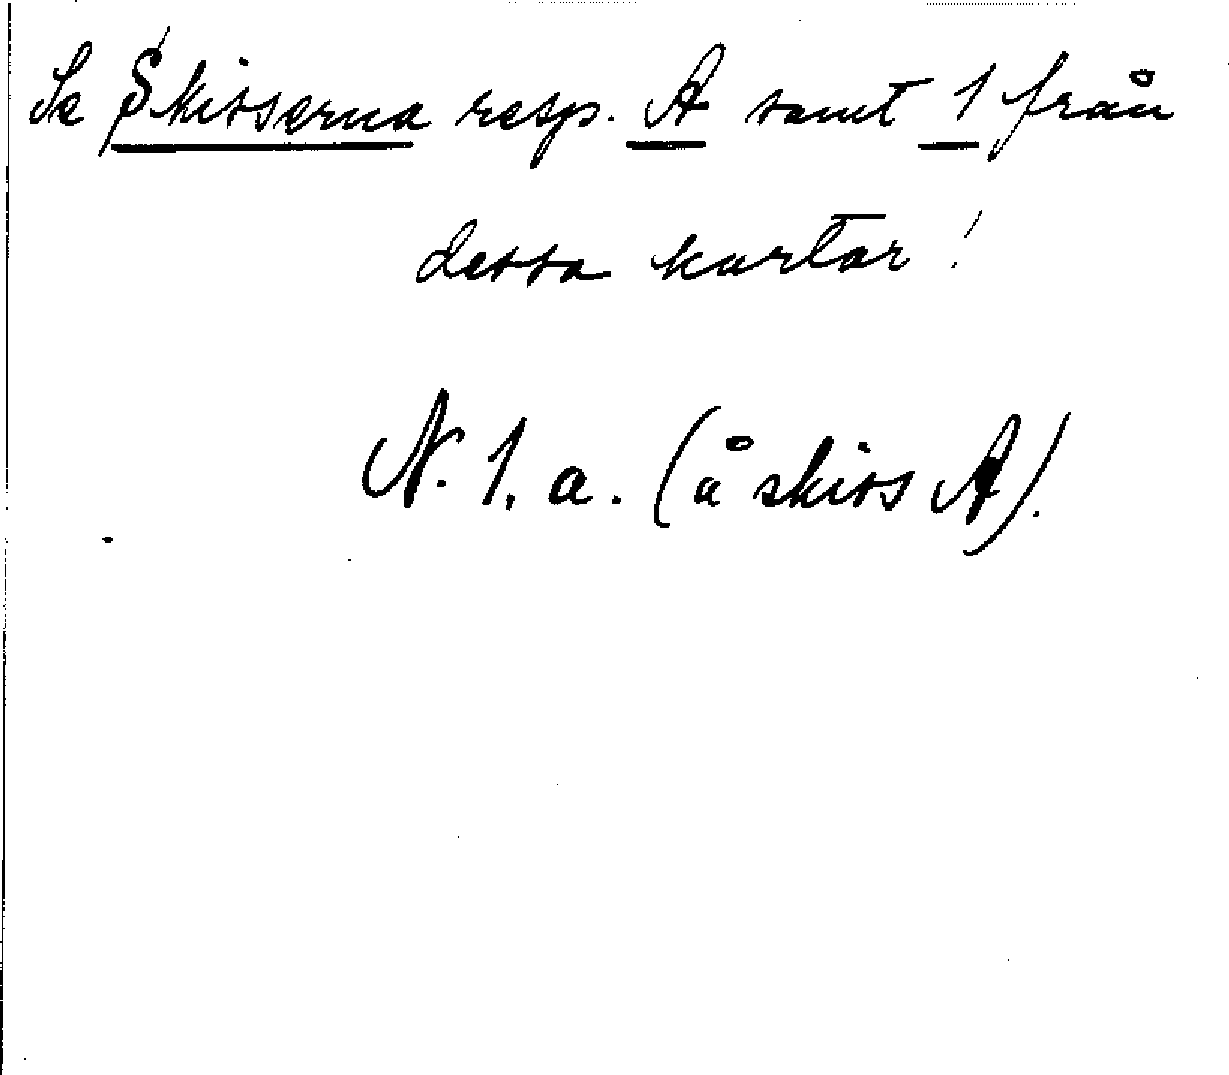 Se Skisserna resp. A samt 1 från
dessa kartor!
N. 1. a. (å skiss A).